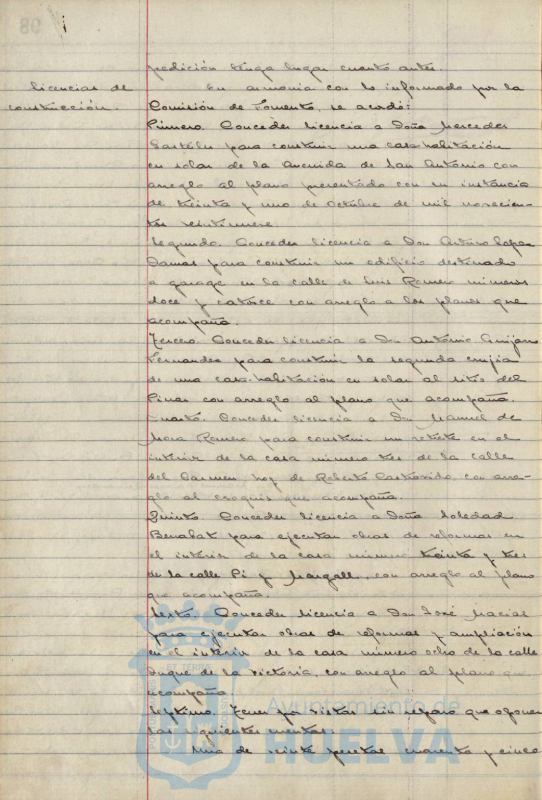 pedición tenga lugar cuanto antes.
Licencias de
construcción.
En armonia con lo informado por la
Comisión de Fomento, se acordó:
Primero. Conceder licencia a Doña Mercedes
para construir una casa-habitación
en solar de la Avenida de San Antonio con
arreglo al plano presentado con su instancia
de treinta y uno de Octubre de mil novecien-
tos veintinueve.
Segundo. Conceder licencia a Don Arturo Lopez
Damas para construir un edificio destinado
a garage en la calle de Luis Romero números
doce y catorce con arreglo a los planos que
acompaña.
Tercero. Conceder licencia a Don Antonio Quijano
Fernandez para construir la segunda crujía
de una casa-habitación en solar al sitio del
Pinar con arreglo al plano que acompaña.
Cuarto. Conceder licencia a Don Manuel de
Mora Romero para construir un retrete en el
interior de la casa número tres de la calle
del Carmen hoy de Roberto Castrovido, con arre-
glo al croquis que acompaña.
Quinto. Conceder licencia a Doña Soledad
Benabat para ejecutar obras de reformas en
el interior de la casa número treinta y tres
de la calle Pi y Margall, con arreglo al plano
que acompaña.
Sexto. Conceder licencia a Don José Macias
para ejecutar obras de reformas y ampliación
en el interior de la casa número ocho de la calle
Duque de la Victoria, con arreglo al plano que
acompaña
Septimo. Tener por vistas sin reparo que oponer
las siguientes cuentas:
Una de veinte pesetas cuarenta y cinco
Ayuntamiento de
HUELVA